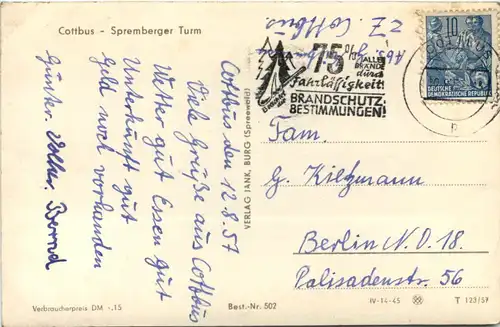 Cottbus - Spremberger Turm
Cottbus den 12.8.57
Viele Grüße aus Cottbus
Wetter gut Essen gut
Unterkunft gut
Geld noch vorhanden
Günter. Volker. Bernd
VERLAG JANK, BURG (Spreewald)
Abs.
z Z. Cottbus
75% ALLER
BRÄNDE
durch
Fahrlässigkeit
BRANDSCHUTZ-
BESTIMMUNGEN!
10
DEUTSCHE
DEMOKRATISCHE REPUBLIK
Fam.
G. Kilzmann
Berlin N.O.18.
Palisadenstr. 56
Verbraucherpreis DM -.15
Best.-Nr. 502
IV-14-45
T 123/57